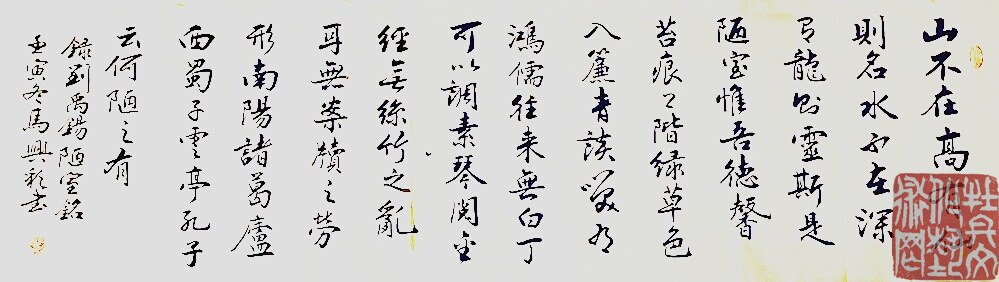 山不在高
則名水不在深
有龍則靈斯是
陋室惟吾德馨
苔痕上階緑草色
入簾青談笑有
鴻儒往来無白丁
可以調素琴閱金
經無絲竹之亂
耳無案牘之勞
形南陽諸葛廬
西蜀子雲亭孔子
云何陋之有
録劉禹錫陋室銘
壬寅冬馬興書